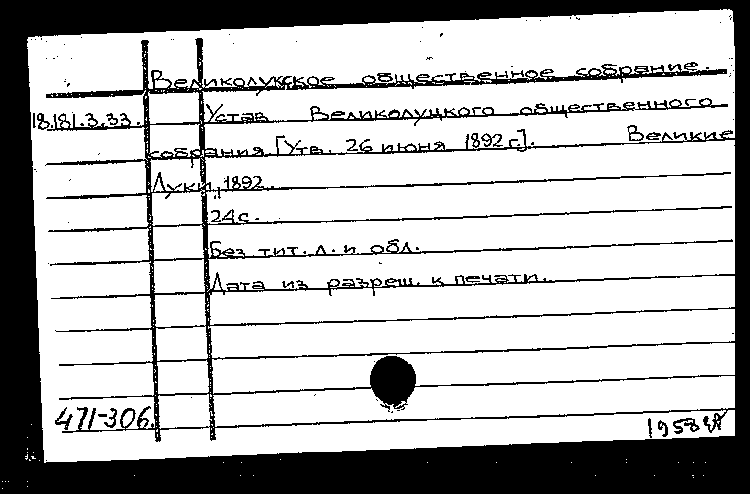 Великолукское общественное собрание.
18.181.3.33. Устав Великолуцкого общественного
собрания [Утв. 26 июня 1892 г.]. Великие
Луки, 1892.
24 с.
Без тит. л. и обл.
Дата из разреш. к печати.
471-306.
1958